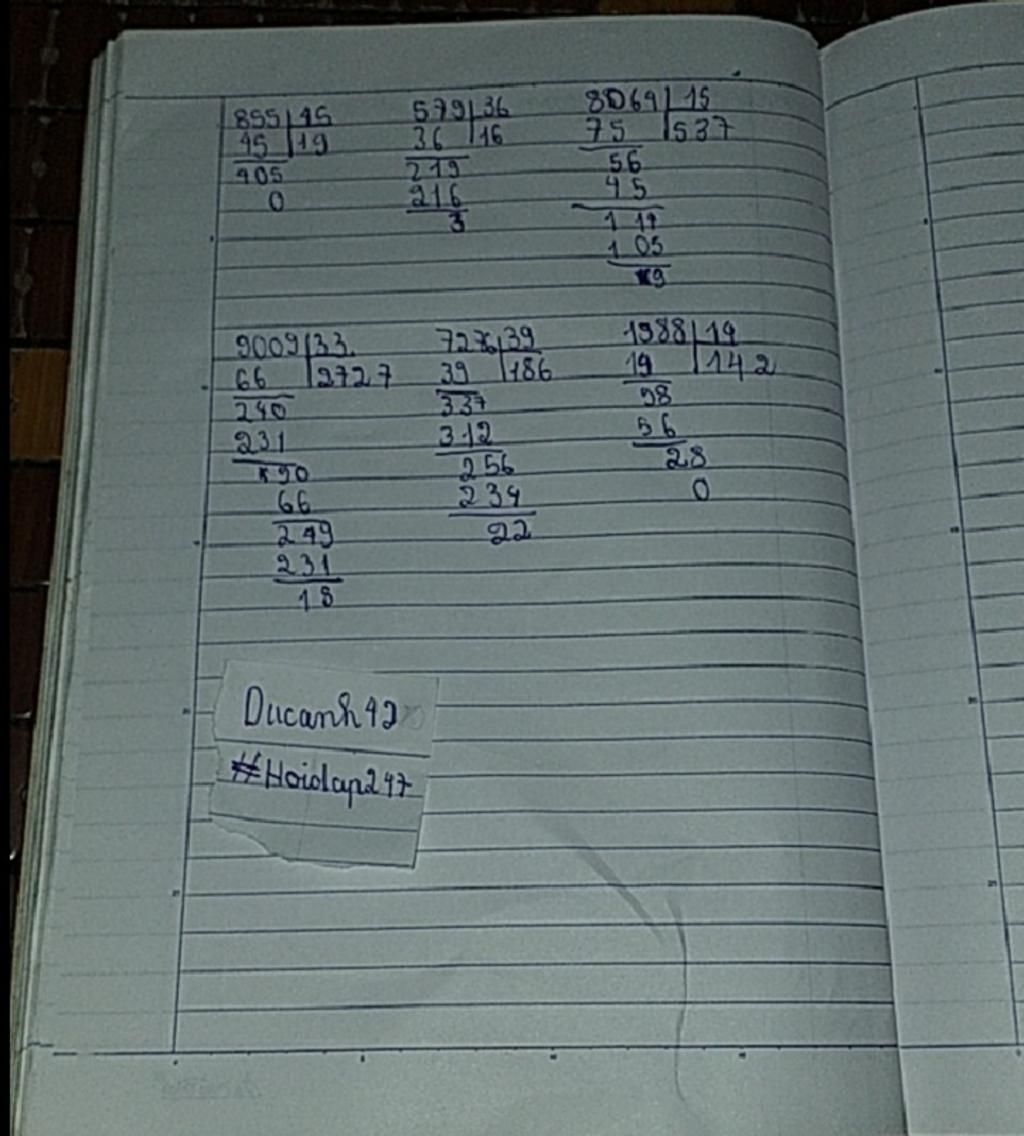 855 45 579 36 8069 15
45 19 36 16 75 537
405 219 56
0 216 45
3 119
105
9
9009 33 7276 39 1988 14
66 2727 39 186 14 142
240 337 58
231 312 56
90 256 28
66 234 0
249 22
231
18
Ducanh42
#Hoidap247